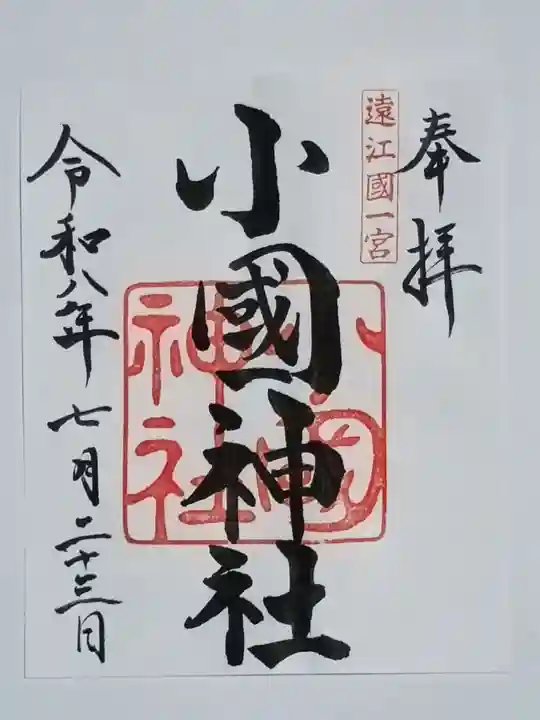 奉拝
遠江國一宮
小國神社
小國神社
令和八年七月二十三日